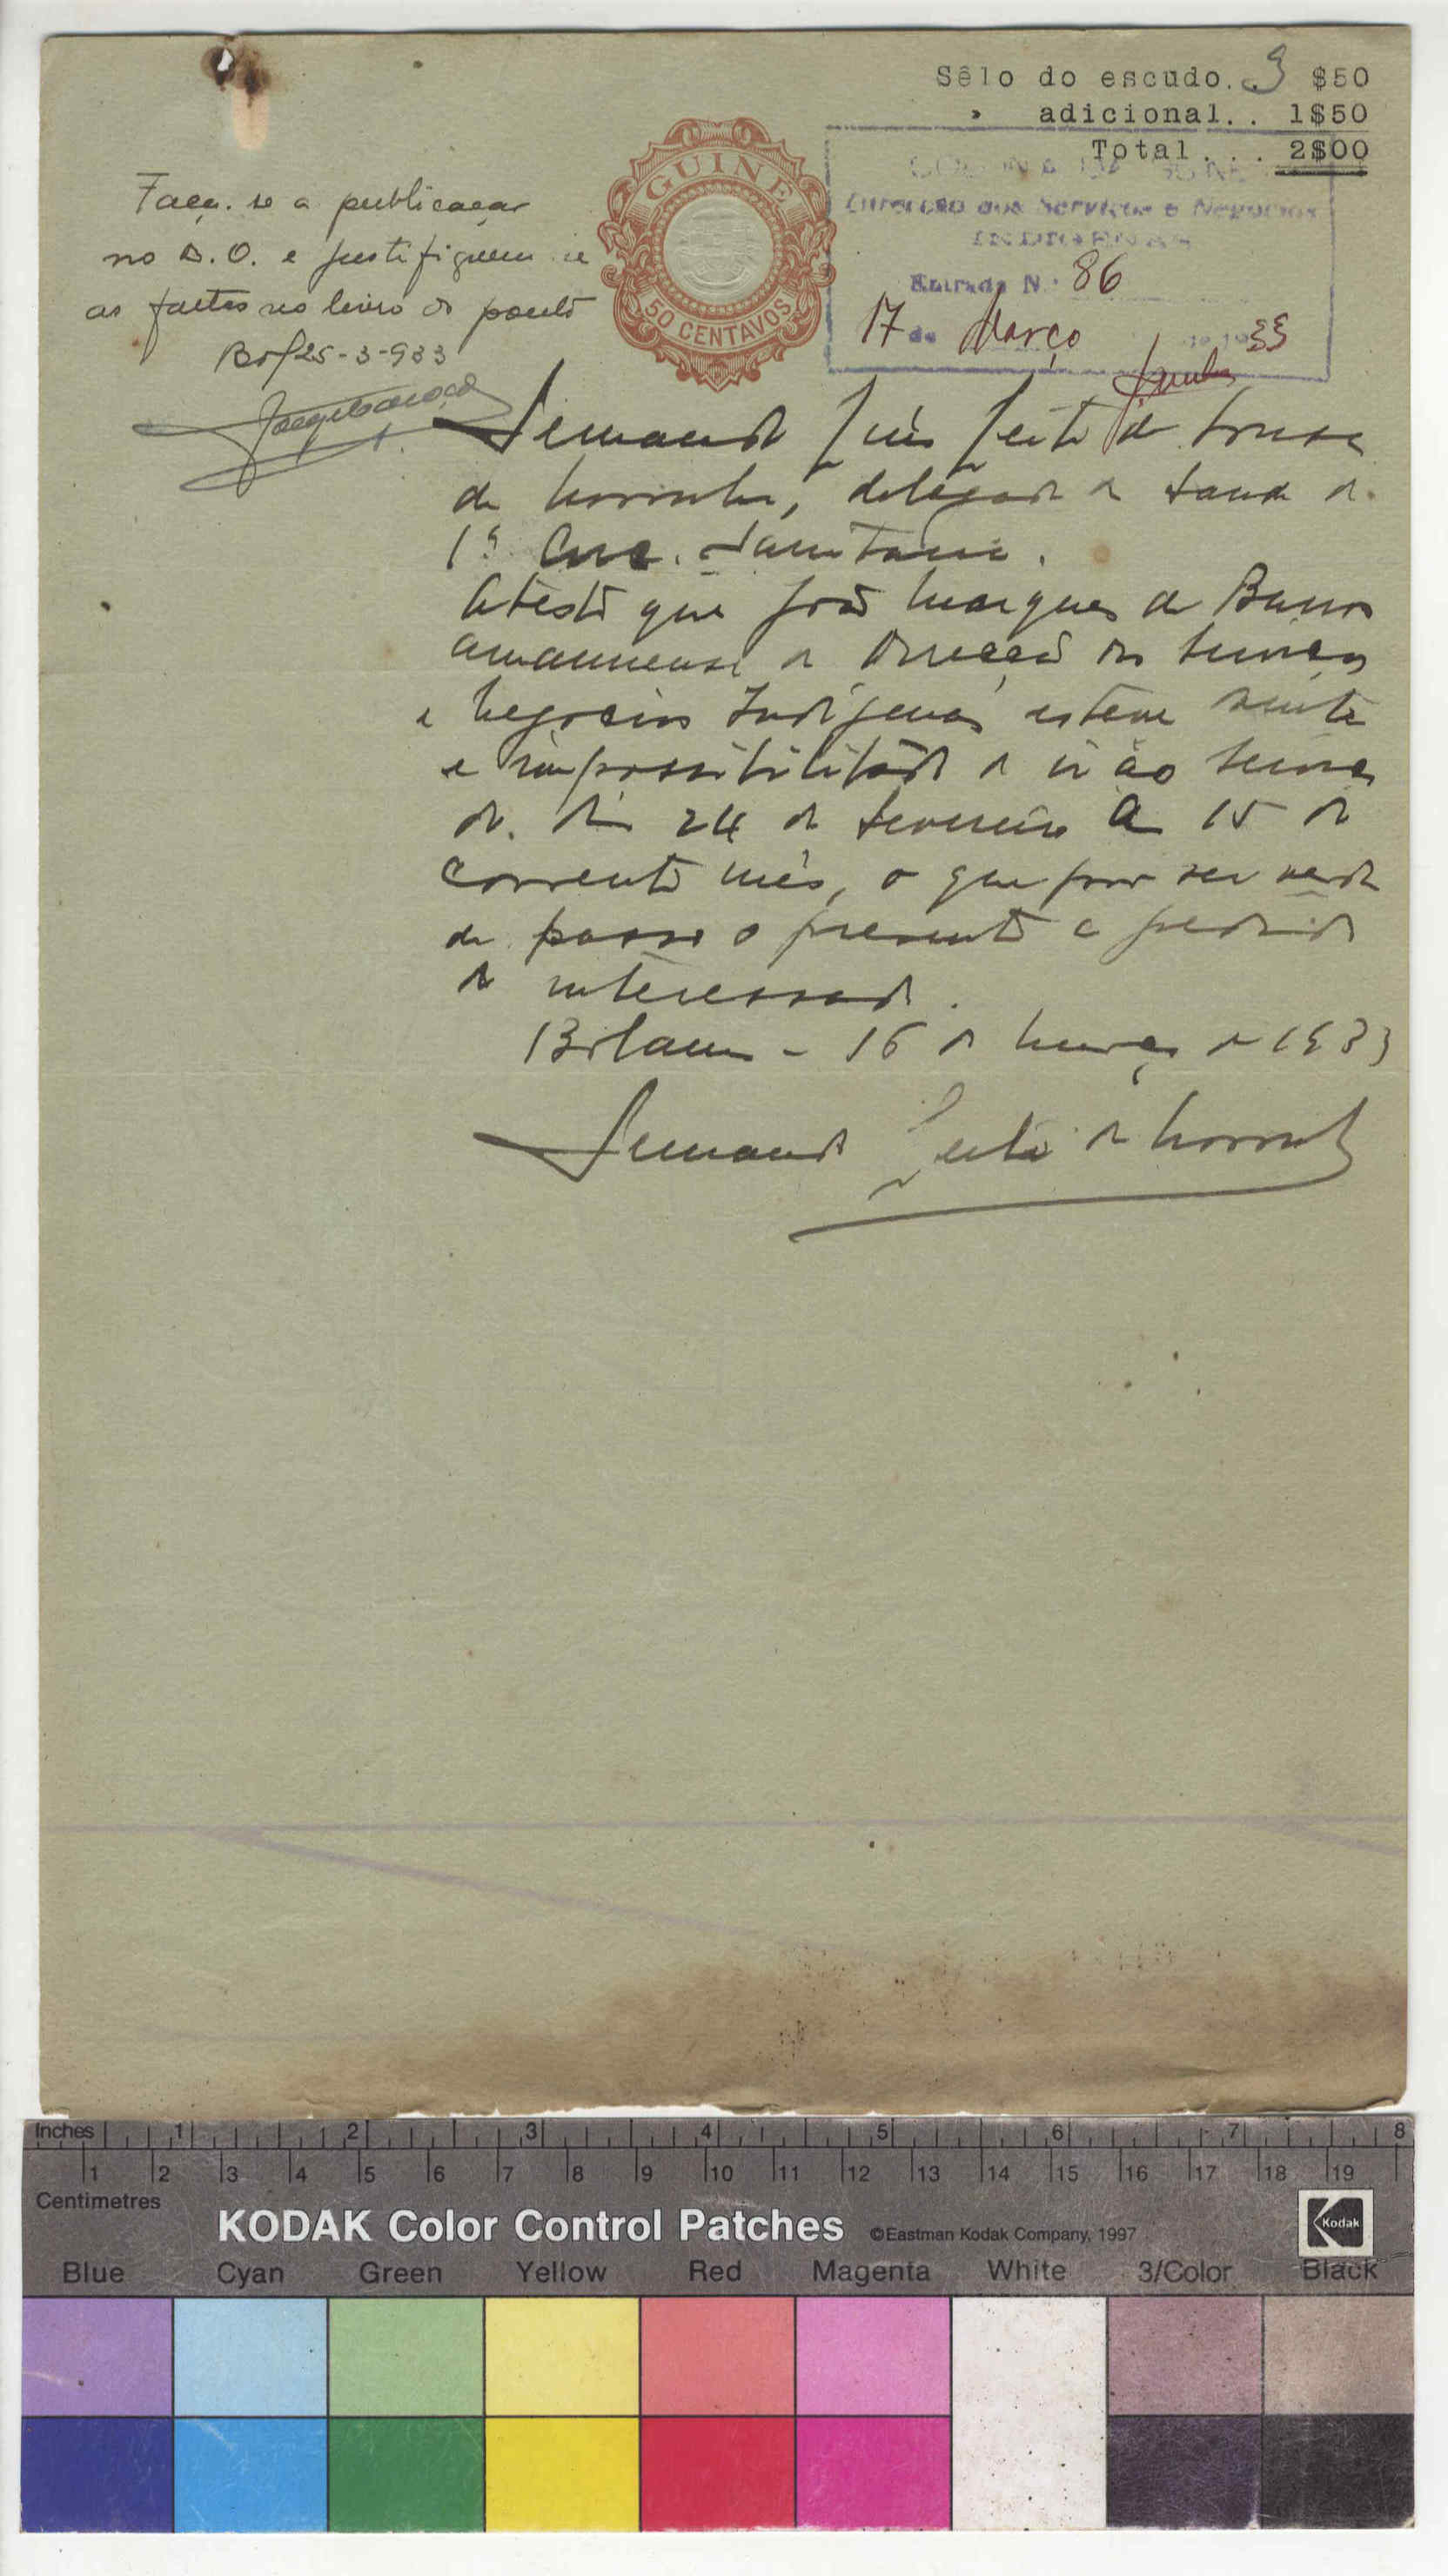 Sêlo do escudo.. $50
" adicional.. 1$50
Total... 2$00
GUINÉ
50 CENTAVOS
COLONIA DA GUINÉ
Direcção dos Serviços e Negocios
INDIGENAS
Entrada N.º 86
17 de Março de 1933
Faça-se a publicação
no B.O. e justifiquem-se
as faltas no livro do ponto
Bol 25-3-933
Fernando Luís Leite de Sousa
de Noronha, delegado de Saude da
1ª Circ. Sanitaria.
Atesto que João Marques de Barros
amanuense da Direcção dos Serviços
e Negocios Indígenas esteve doente
e impossibilitado de ir ao serviço
do dia 24 de Fevereiro a 15 do
corrente mês, o que por ser verda
de passo o presente a pedido
do interessado.
Bolama - 16 de Março de 1933
Fernando Leite de Noronha
Inches 1 2 3 4 5 6 7 8
1 2 3 4 5 6 7 8 9 10 11 12 13 14 15 16 17 18 19
Centimetres
KODAK Color Control Patches ©Eastman Kodak Company, 1997 Kodak
Blue Cyan Green Yellow Red Magenta White 3/Color Black